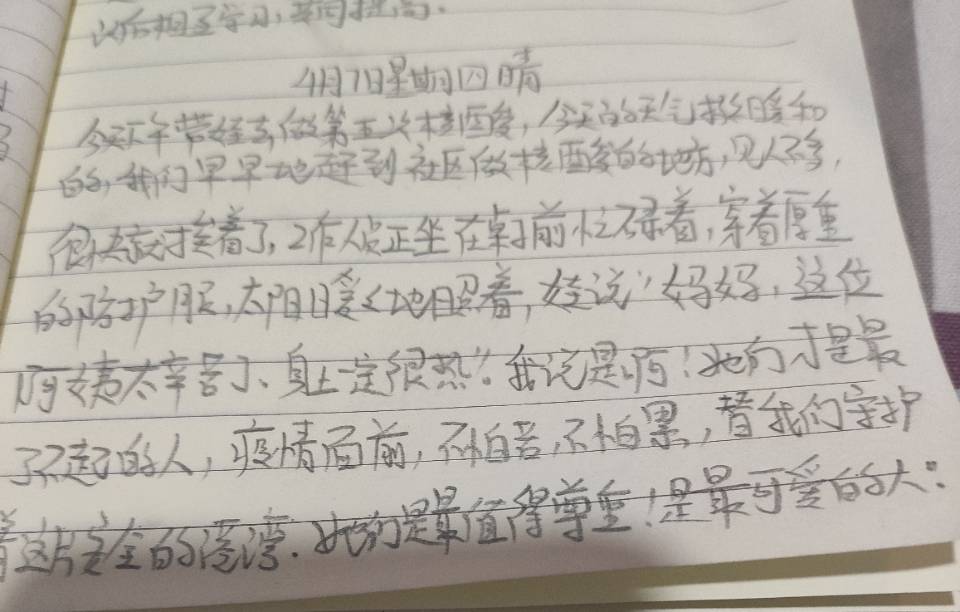 以后相互学习,共同提高.
4月7日星期四晴
今天下午带娃去做第五次核酸,今天的天气挺暖和
的,我们早早地赶到社区做核酸的地方,见人不多,
很快就排着了,工作人员正坐在桌子前忙碌着,穿着厚重
的防护服,太阳日爱爱地照着,娃说"妈妈,这位
阿姨太辛苦了、身上一定很热"。我说是阿!她们才是最
了不起的人,疫情面前,不怕苦,不怕累,替我们守护
着这片安全的港湾.她们是最值得尊重!是最可爱的人: